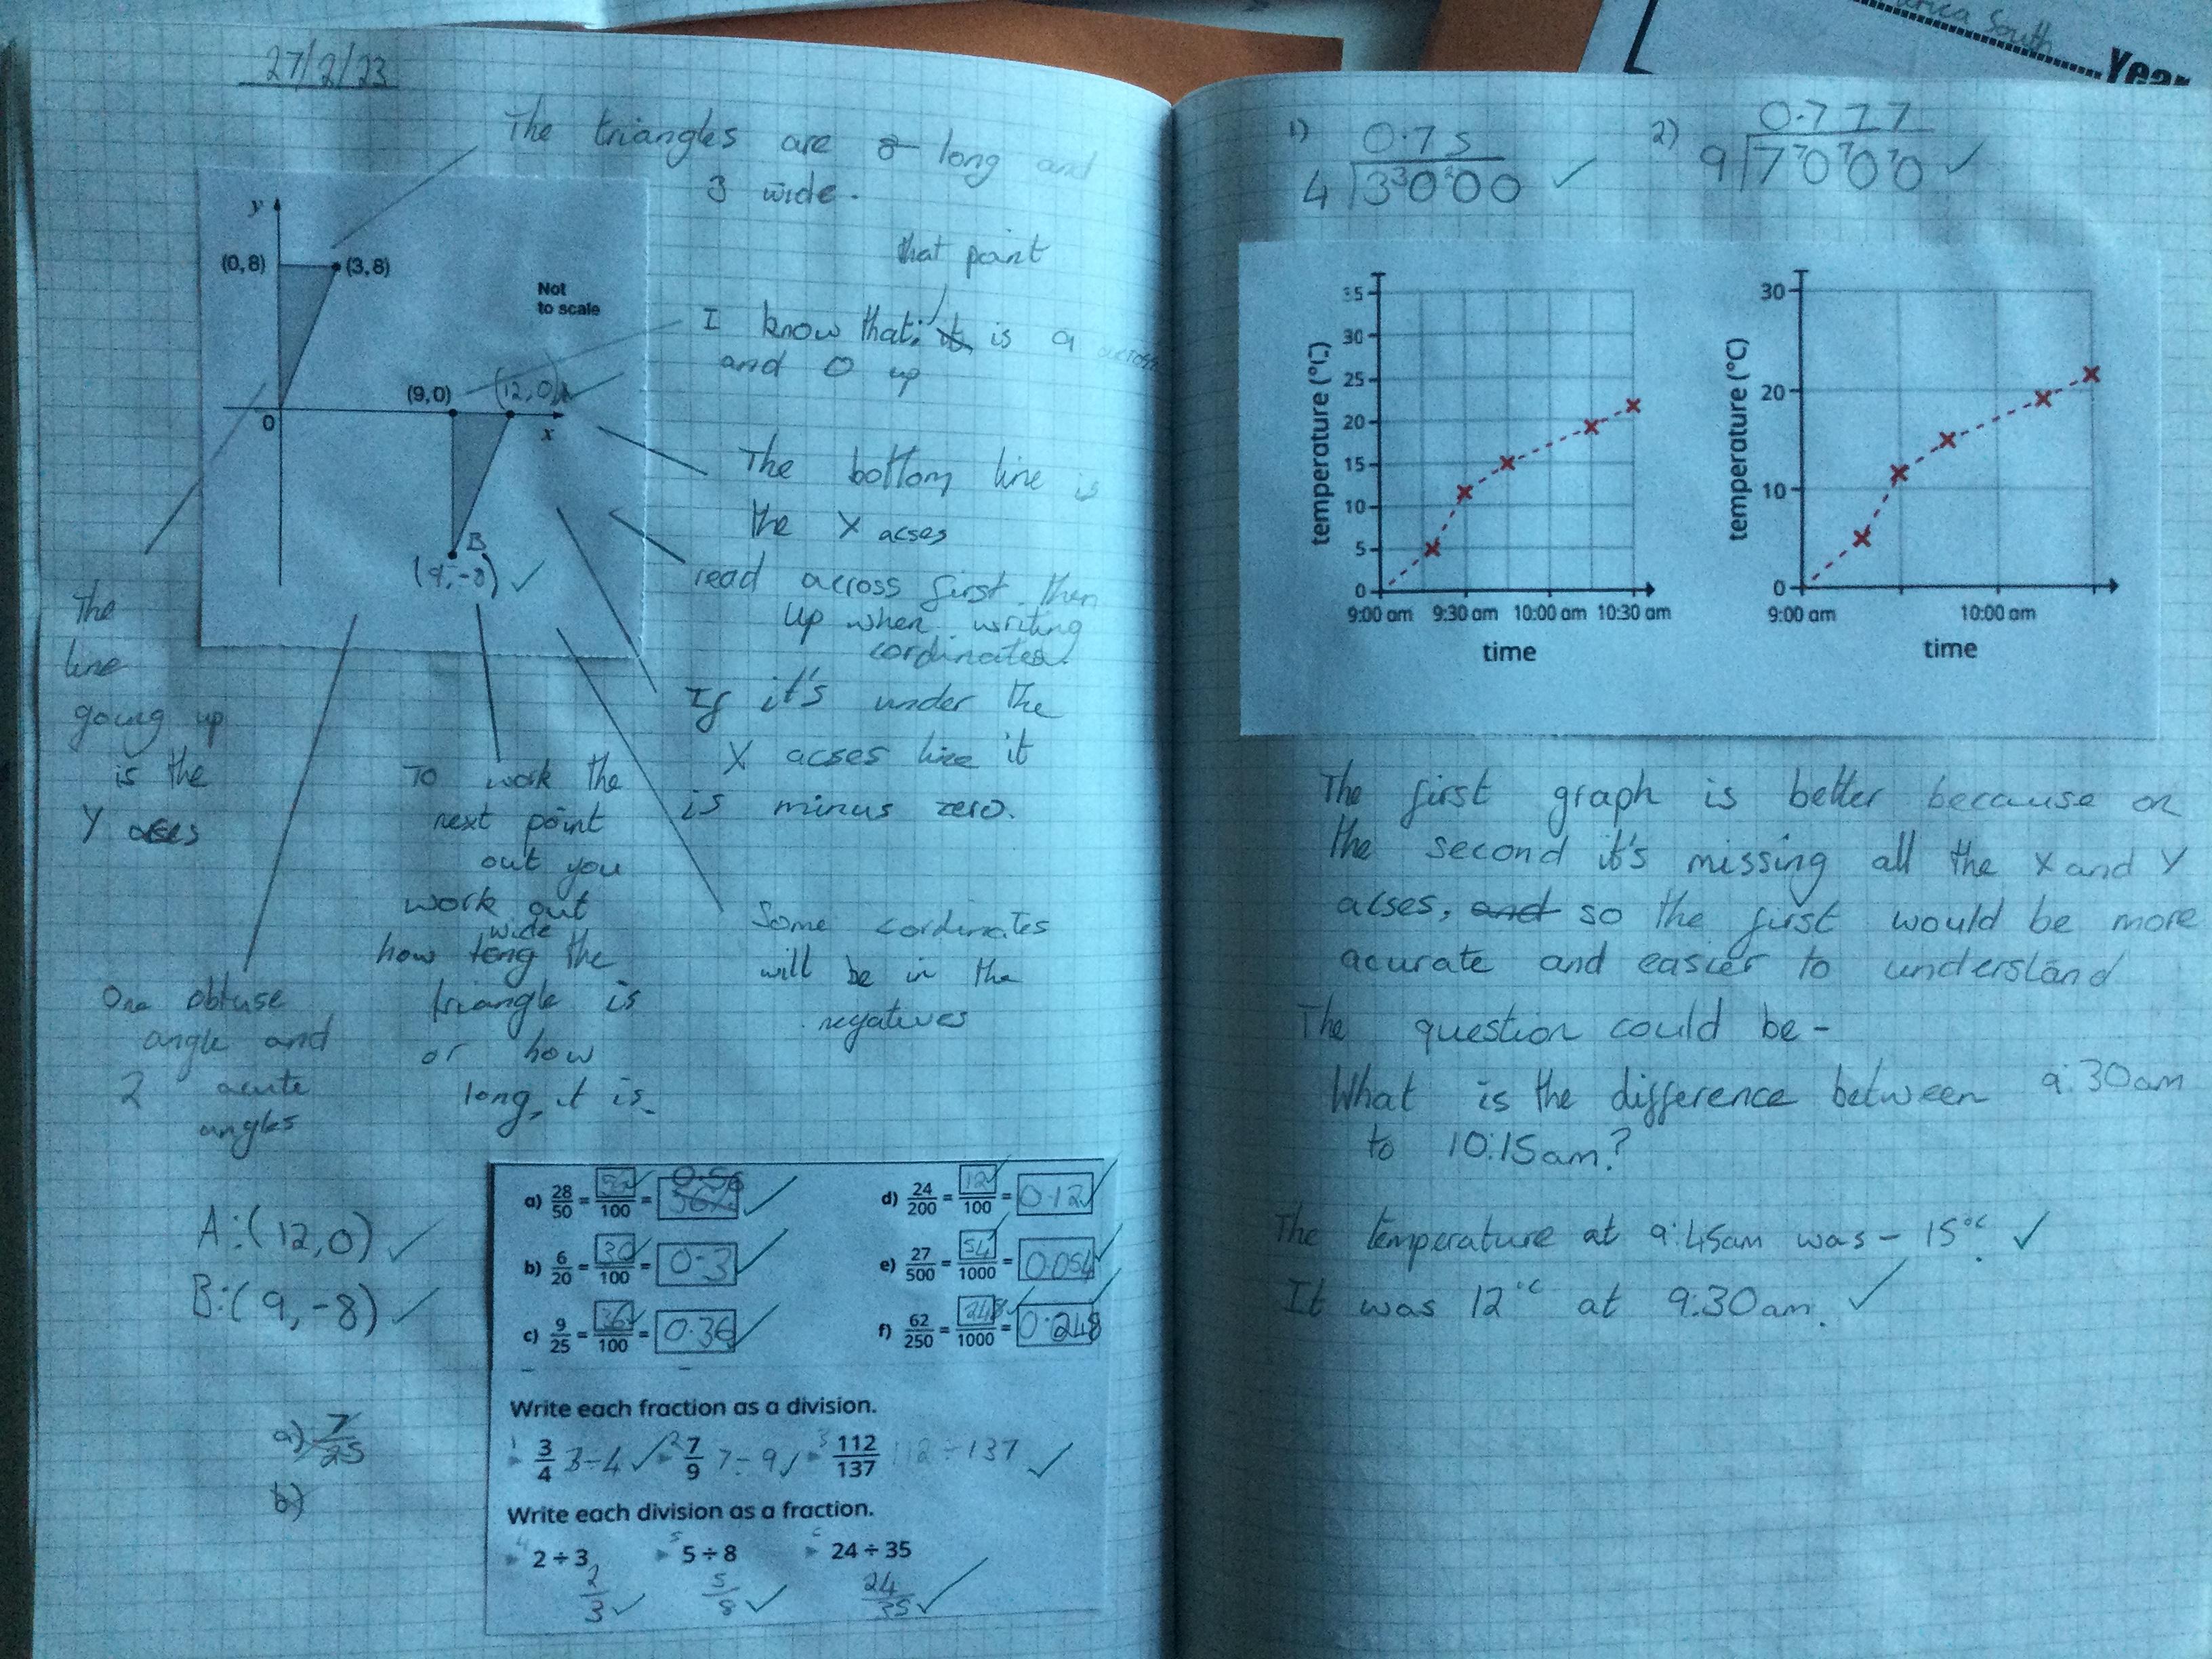 27/2/23
The triangles are 8 long and
3 wide.
y
(0,8)
(3,8)
Not
to scale
that point
I know that it is 9 across
and 0 up
(9,0)
(12,0)
0
x
The bottom line is
the X acses
B
(9,-8) ✓
read across first then
up when writing
cordinates.
If it's under the
X acses line it
is minus zero.
The
line
going up
is the
Y acses
To work the
next point
out you
work out
wide
how long the
triangle is
or how
long, it is.
Some cordinates
will be in the
negatives
One obtuse
angle and
2 acute
angles
A:(12,0) ✓
B:(9,-8) ✓
a) 7/25
b)
a) 28/50 = /100 = 0.56 ✓
b) 6/20 = 30/100 = 0.3 ✓
c) 9/25 = 36/100 = 0.36 ✓
d) 24/200 = 12/100 = 0.12 ✓
e) 27/500 = 54/1000 = 0.054 ✓
f) 62/250 = 248/1000 = 0.248
Write each fraction as a division.
1 3/4 3÷4 ✓ 2 7/9 7÷9 ✓ 3 112/137 112÷137 ✓
Write each division as a fraction.
4 2÷3 5 5÷8 6 24÷35
2/3 ✓ 5/8 ✓ 24/35 ✓
erica South
Year
1) 0.75
4 3³0²00 ✓
2) 0.777
9 7⁷0⁷0⁷0 ✓
temperature (°C)
35
30
25
20
15
10
5
0
9:00 am 9:30 am 10:00 am 10:30 am
time
temperature (°C)
30
20
10
0
9:00 am 10:00 am
time
The first graph is better because on
the second it's missing all the X and Y
acses, and so the first would be more
acurate and easier to understand
The question could be -
What is the difference between 9:30am
to 10:15am?
The temperature at 9:45am was - 15°c. ✓
It was 12°c at 9:30am. ✓